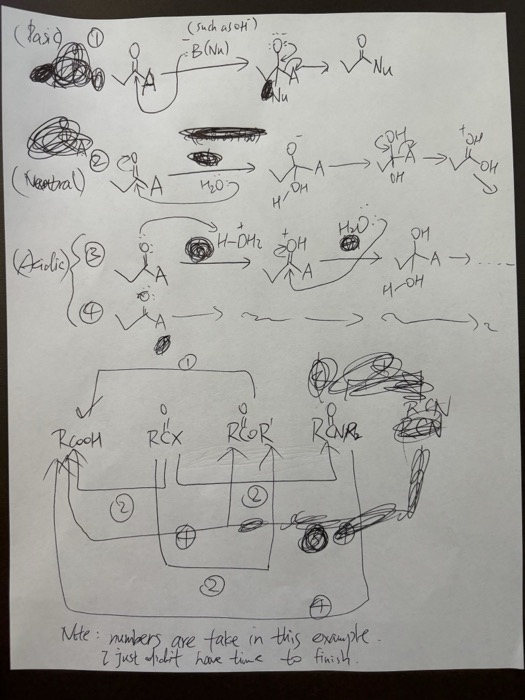 (Basic) ① (such as OH⁻)
O A ⁻:B(Nu) O A Nu O Nu
(Neutral) ② O A H₂O: O⁻ A H OH OH A OH ⁺OH OH
(Acidic) ③ O: A H-OH₂⁺ ⁺OH A H₂O: OH A H OH ......
④ O: A
①
RCN
RCOOH RCX O RCOR' O RCNR₂ O
② ②
④
②
④
Note: numbers are take in this example.
I just didn't have time to finish.